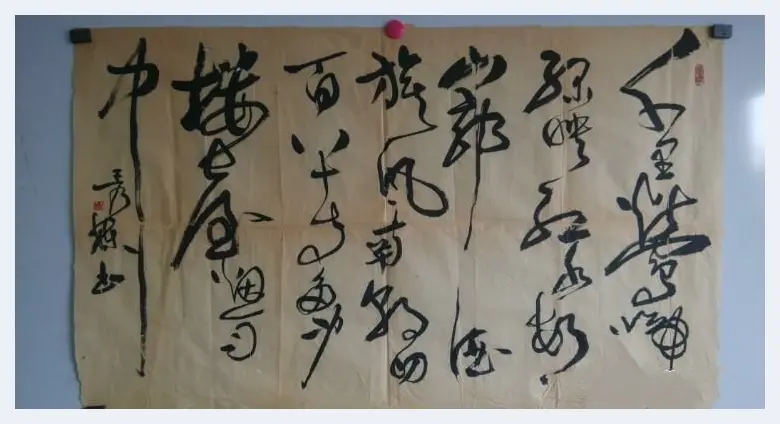 千里鶯啼
綠映紅水村
山郭酒
旗风南朝四
百八十寺多少
樓臺烟雨
中
书